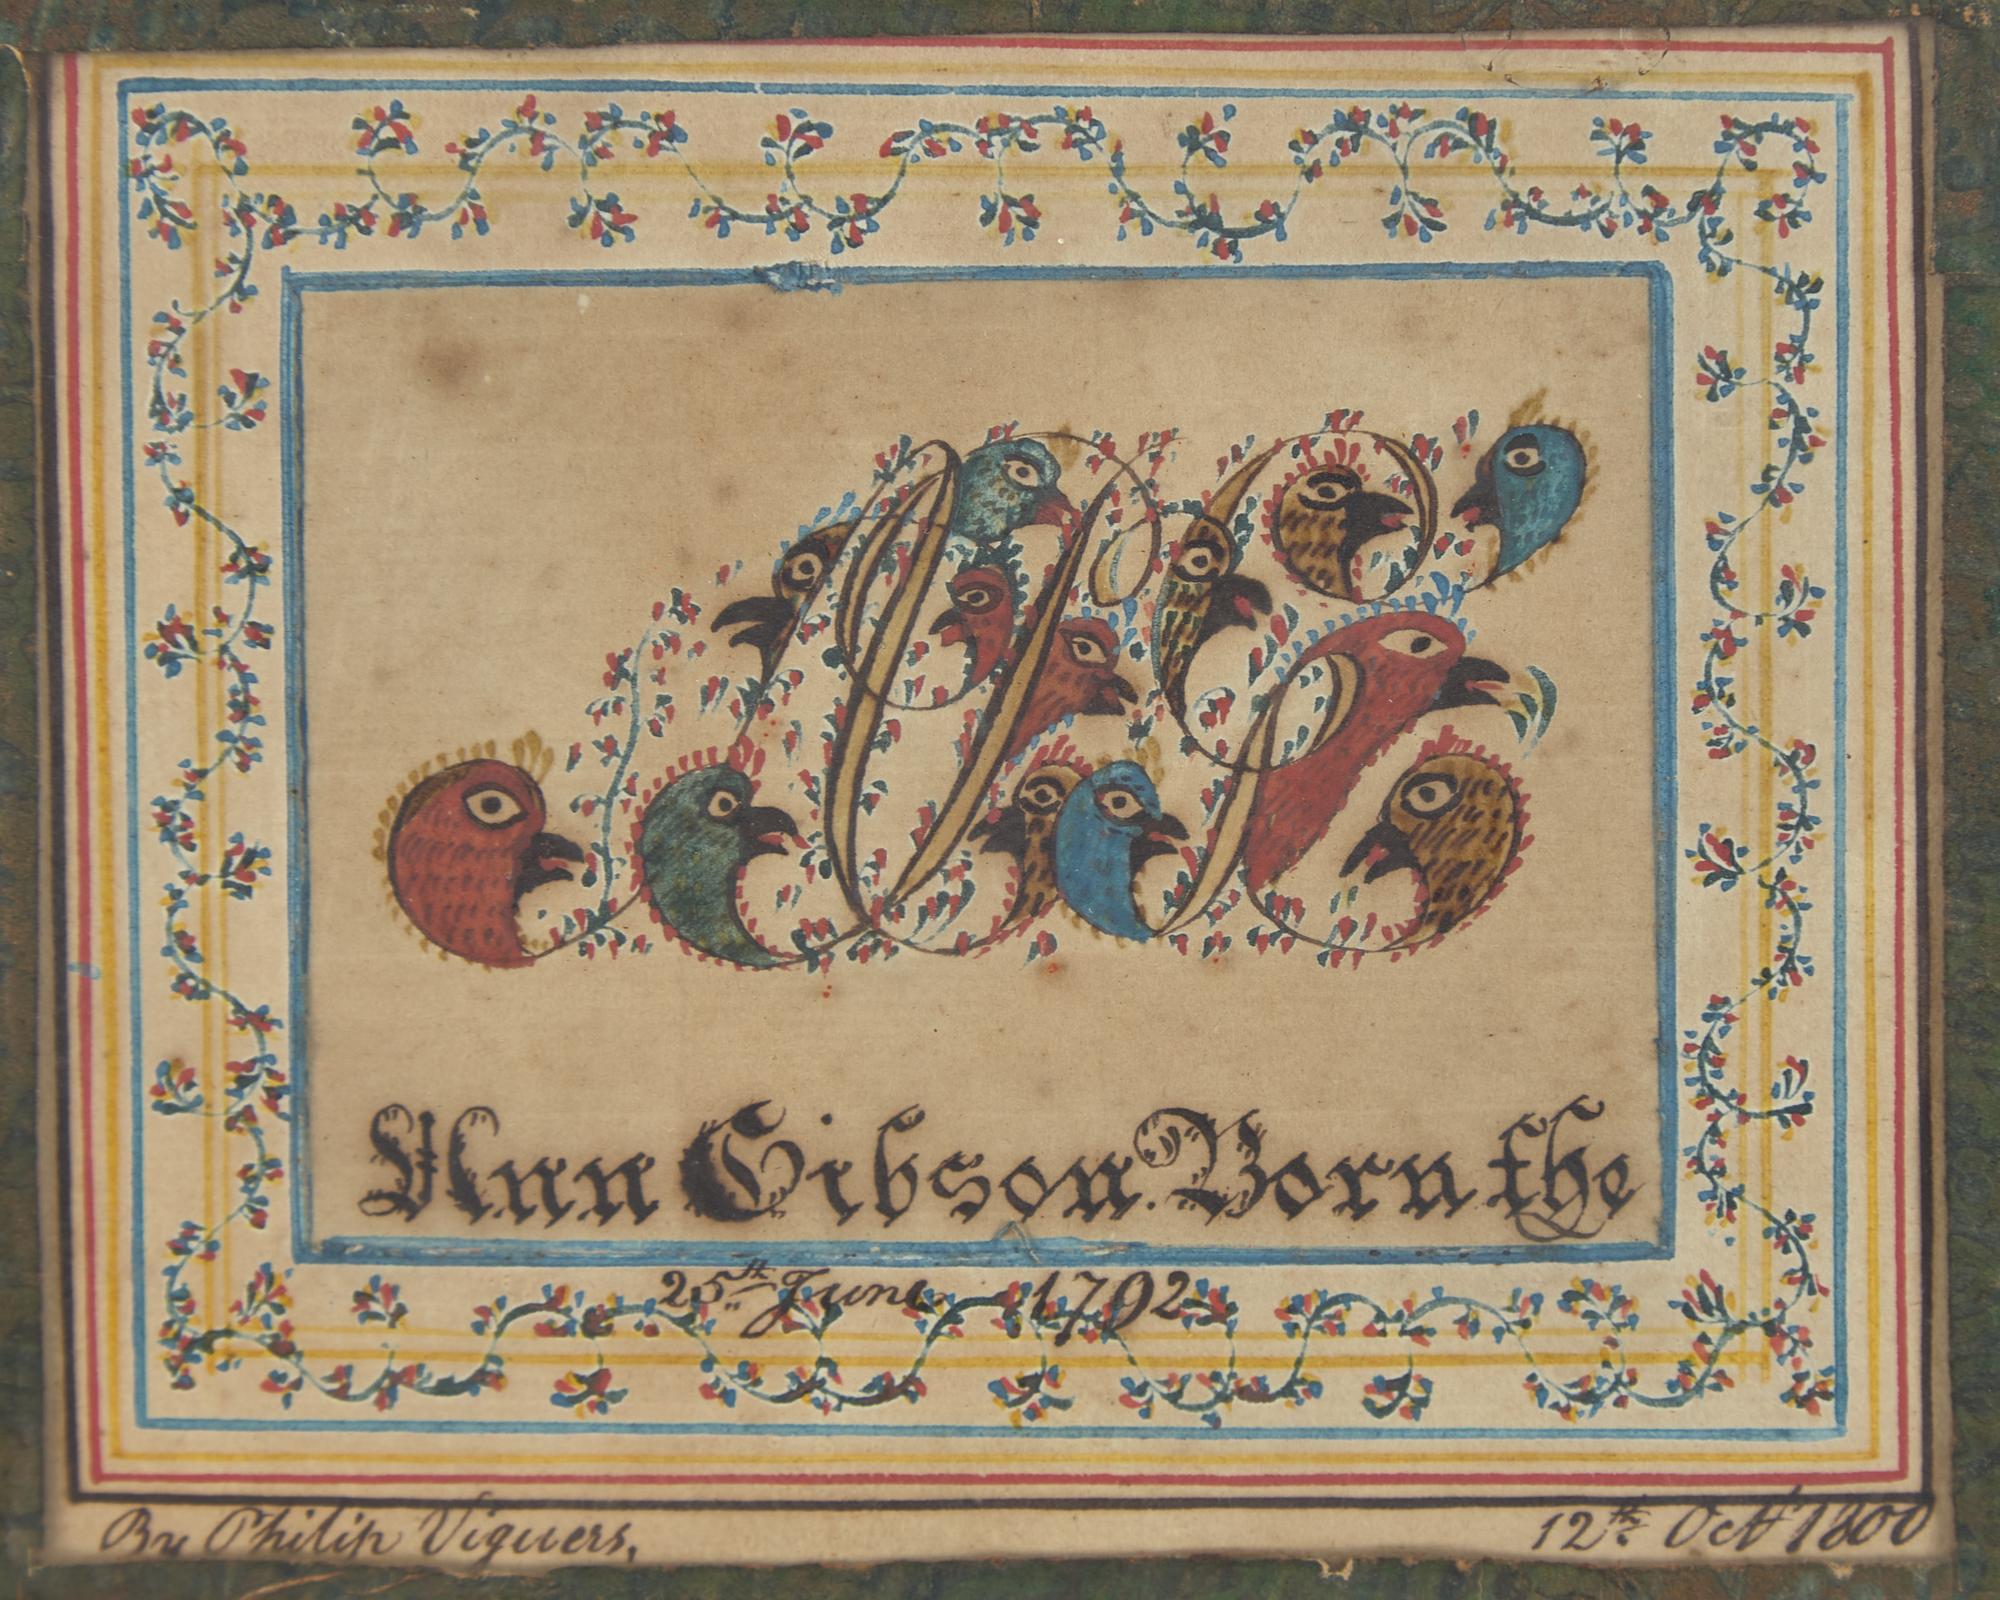 AG
Ann Gibson. Born the
25th June 1792
By Philip Viguers,
12th Octr 1800